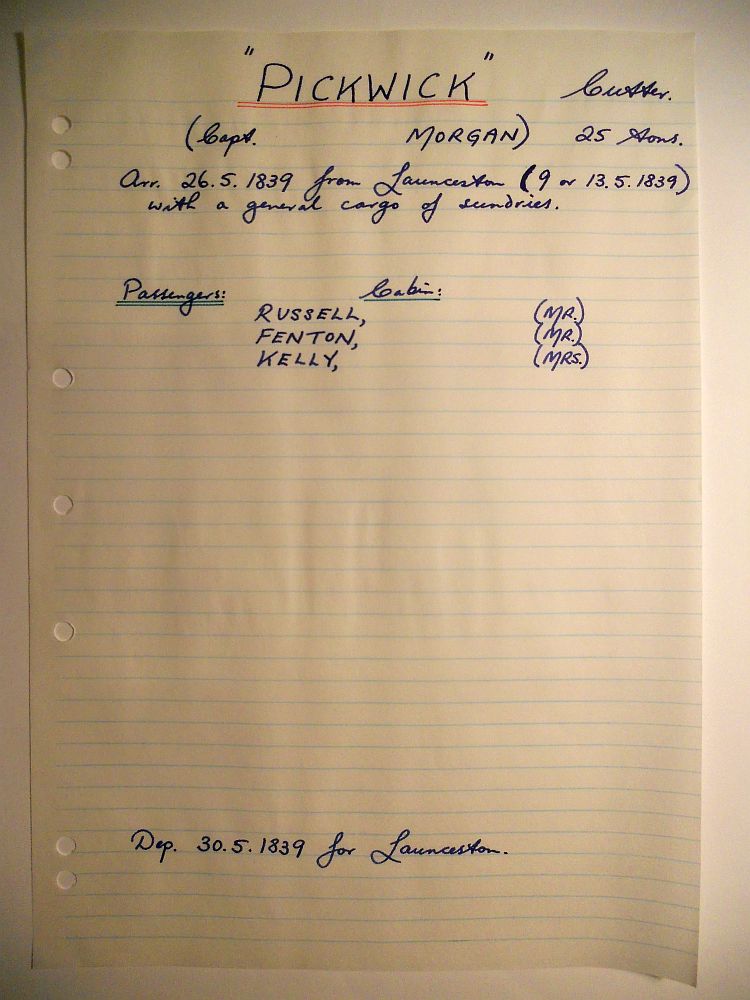 "PICKWICK" Cutter.
(Capt. MORGAN) 25 tons.
Arr. 26.5.1839 from Launceston (9 or 13.5.1839)
with a general cargo of sundries.
Passengers: Cabin:
RUSSELL, (MR.)
FENTON, (MR.)
KELLY, (MRS.)
Dep. 30.5.1839 for Launceston.